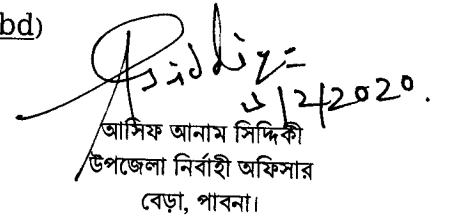 bd)
Asiddiq
/2/2020.
আসিফ আনাম সিদ্দিকী
উপজেলা নির্বাহী অফিসার
বেড়া, পাবনা।